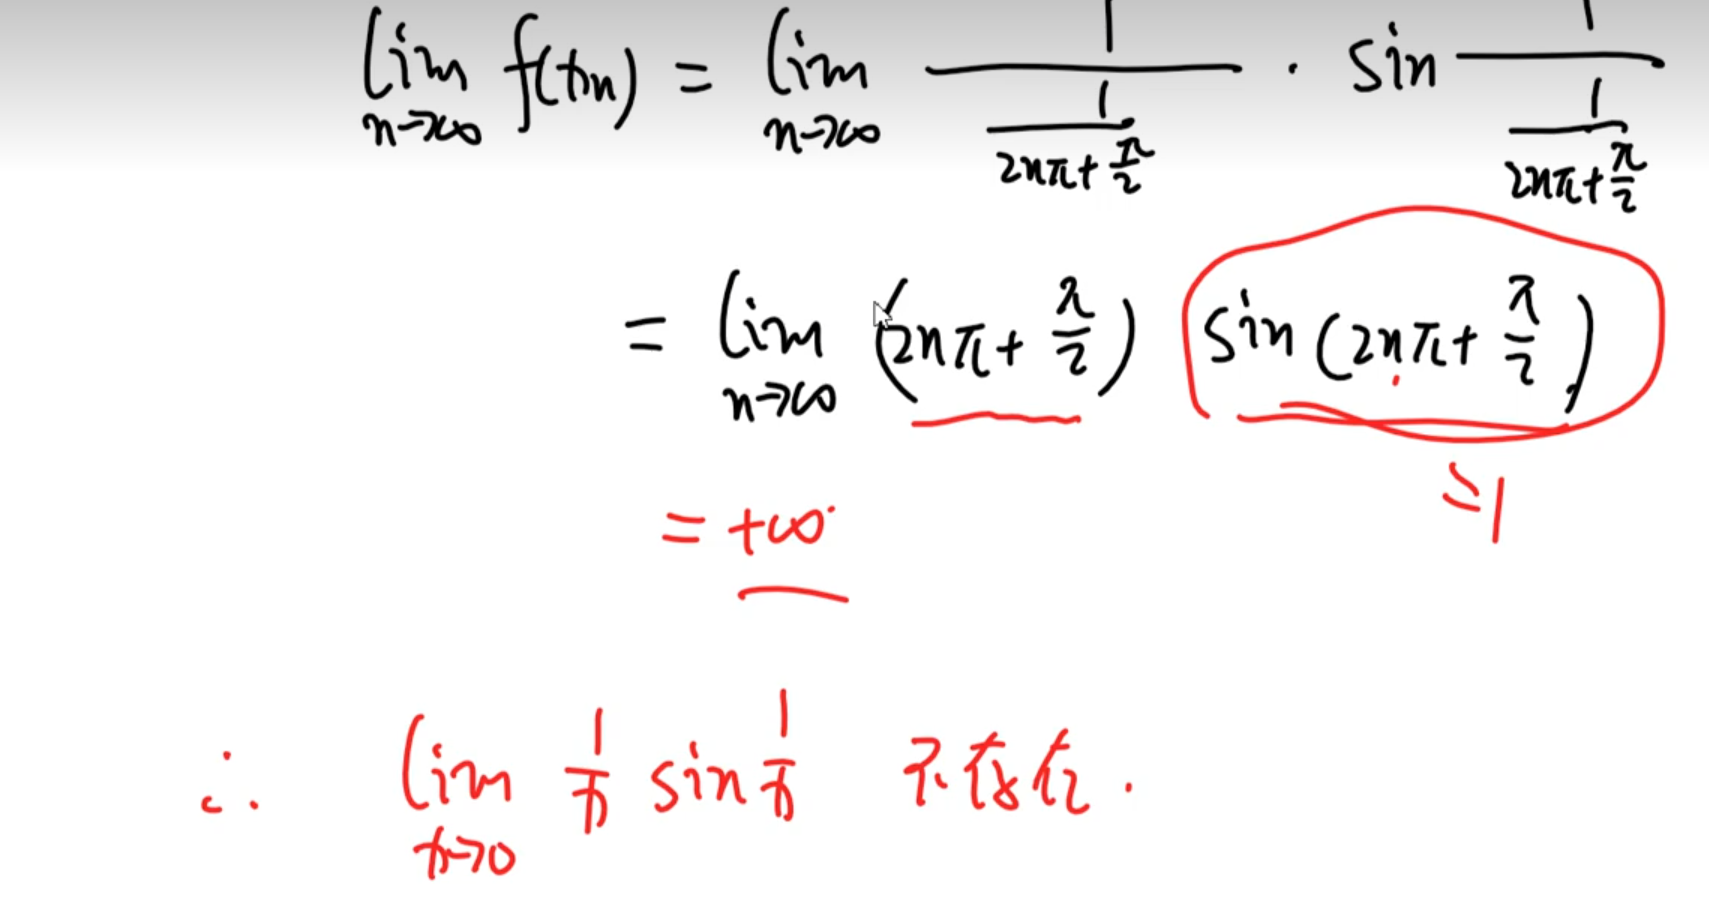 lim n→∞ f(xn) = lim n→∞ 1/(1/(2nπ+π/2)) · sin 1/(1/(2nπ+π/2))
= lim n→∞ (2nπ+π/2) sin(2nπ+π/2)
=1
= +∞
∴ lim x→0 1/x sin 1/x 不存在.